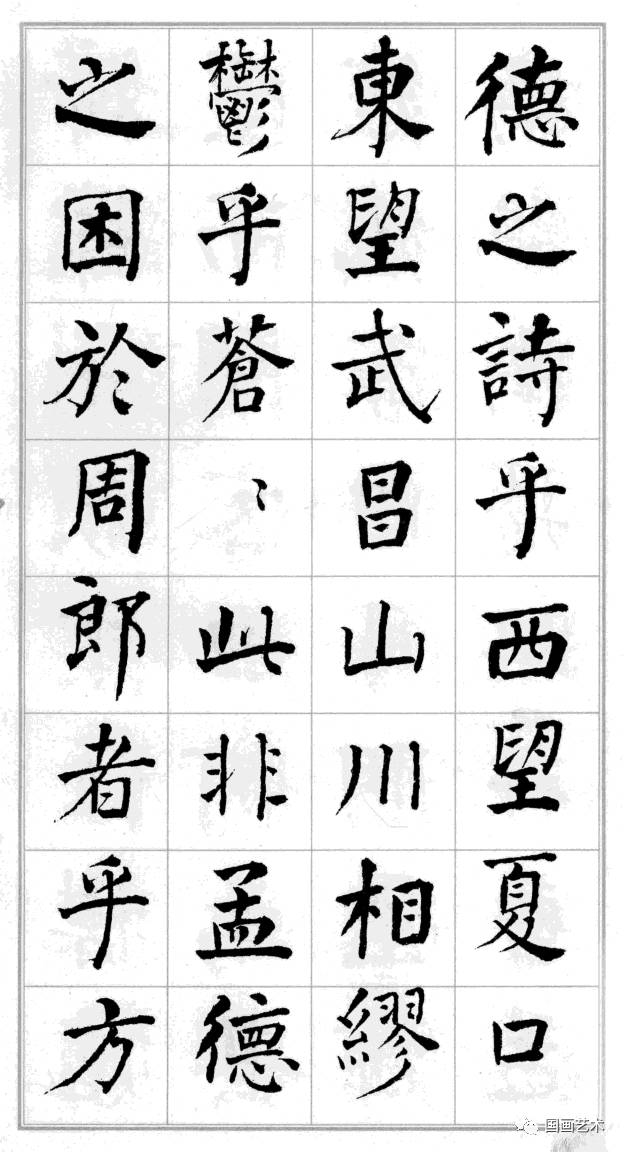 德之詩乎西望夏口
東望武昌山川相繆
鬱乎蒼〻此非孟德
之困於周郎者乎方
国画艺术